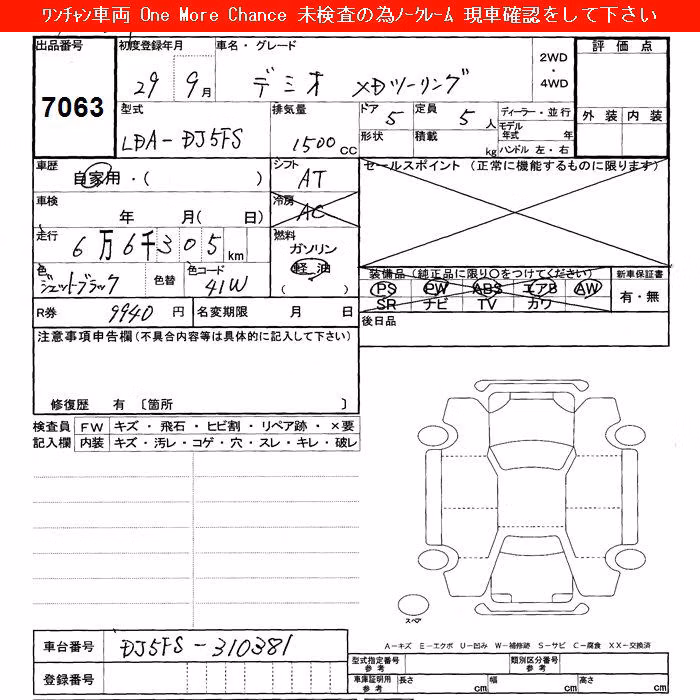 ワンチャン車両 One More Chance 未検査の為ノークレーム 現車確認をして下さい
出品番号 初度登録年月 車名・グレード 2WD・4WD 評価点
7063 29 9月 デミオ XDツーリング
型式 排気量 ドア 定員 ディーラー・並行 外装 内装
LDA-DJ5FS 1500cc 5 5人 モデル年式 年
形状 積載 kg ハンドル 左・右
車歴 自家用・( ) シフト AT セールスポイント (正常に機能するものに限ります)
車検 年 月(日) 冷房 AC
走行 6万6千305km 燃料 ガソリン
軽油
( )
色 ジェットブラック 色替 色コード 41W
装備品(純正品に限り○をつけてください) 新車保証書
PS PW ABS エアB AW 有・無
SR ナビ TV カワ
R券 9940円 名変期限 月 日 後日品
注意事項申告欄(不具合内容等は具体的に記入して下さい)
修復歴 有 〔箇所 〕
検査員 FW キズ・飛石・ヒビ割・リペア跡・×要
記入欄 内装 キズ・汚レ・コゲ・穴・スレ・キレ・破レ
スペア
A-キズ E-エクボ U-凹み W-補修跡 S-サビ C-腐食 XX-交換済
車台番号 DJ5FS-310381
型式指定番号 参考 類別区分番号 参考
登録番号
車庫証明用 参考 長さ cm 幅 cm 高さ cm